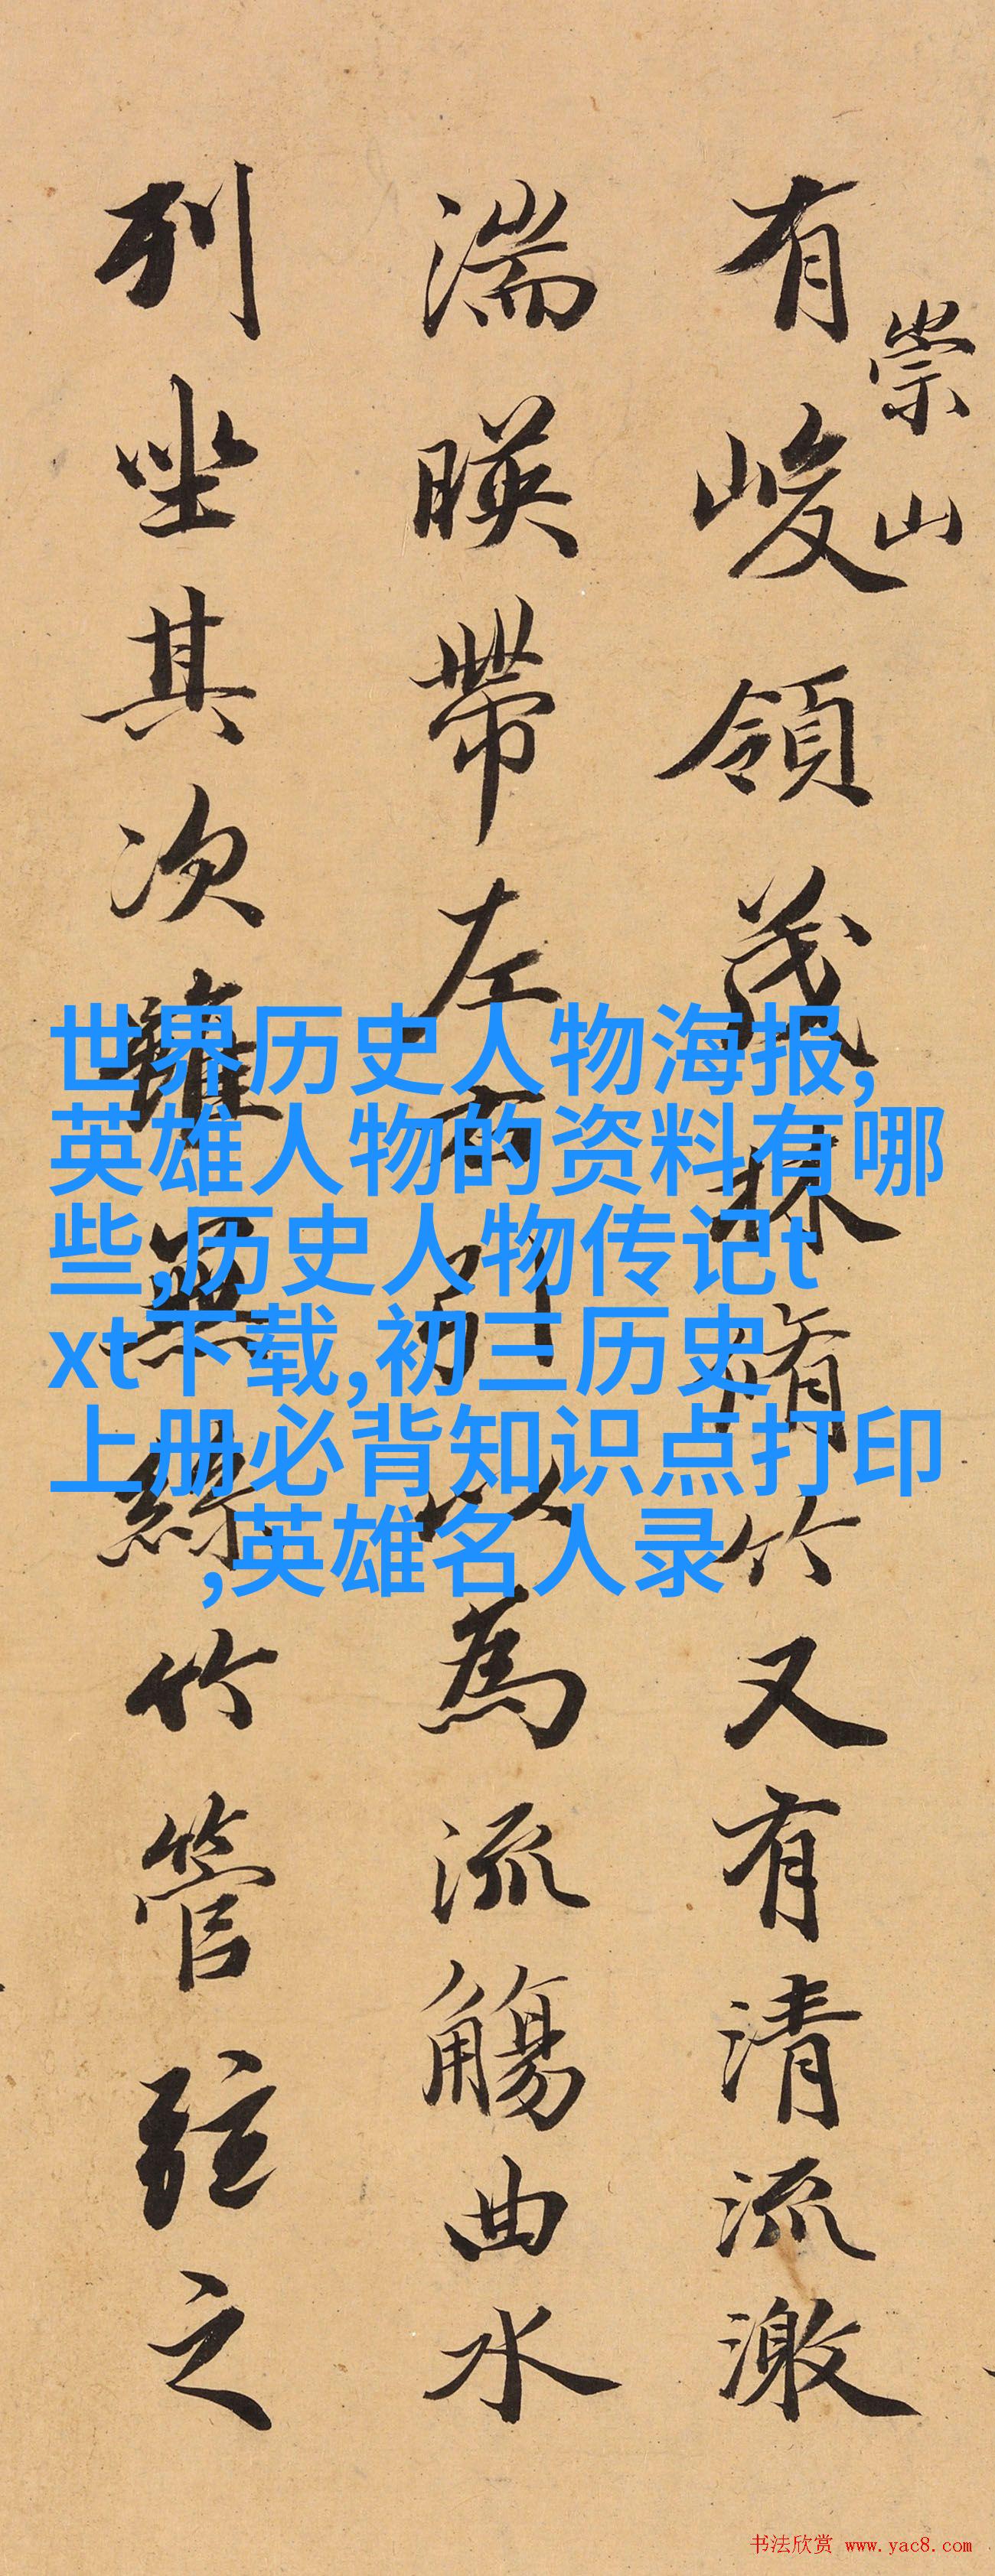 崇山
有峻領茂林脩竹又有清流激
湍暎帶左右引以為流觴曲水
列坐其次雖無絲竹管弦之
世界历史人物海报,
英雄人物的资料有哪
些,历史人物传记t
xt下载,初三历史
上册必背知识点打印
,英雄名人录
书法欣赏 www.yac8.com